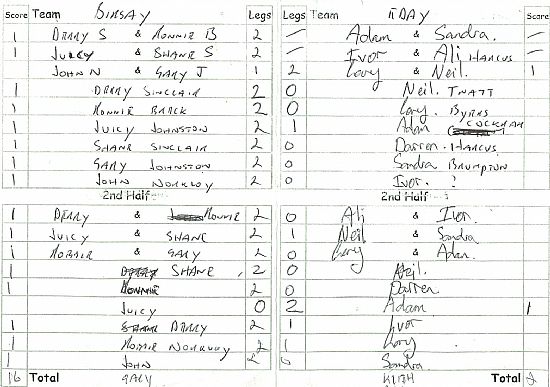 Score Team BIRSAY Legs Legs Team EDAY Score
1 DERRY S & RONNIE B 2 – Adam & Sandra.
1 JUICY & SHANE S 2 – Ivor & Ali HARCUS
JOHN N & GARY J 1 2 & Neil. 1
1 DERRY SINCLAIR 2 0 Neil. TNATT
1 RONNIE BRECK 2 0
1 JUICY JOHNSTON 2 1 Adam COCKRAM
1 SHANE SINCLAIR 2 0 Darren. HARCUS
1 GARY JOHNSTON 2 0 Sandra BRUMPTON
1 JOHN NORKWOY 2 0 Ivor. ?
2nd Half 2nd Half
1 DERRY & RONNIE 2 0 Ali & Ivor.
1 JUICY & SHANE 2 1 Neil & Sandra
1 & GARY 2 0 & Adam.
1 SHANE 2 0 Neil.
1 RONNIE 2 0 Darren
JUICY 0 2 Adam 1
1 DERRY 2 1 Ivor
1 NORKWOY 2 1
1 JOHN 2 0 Sandra
16 Total GARY Total 2